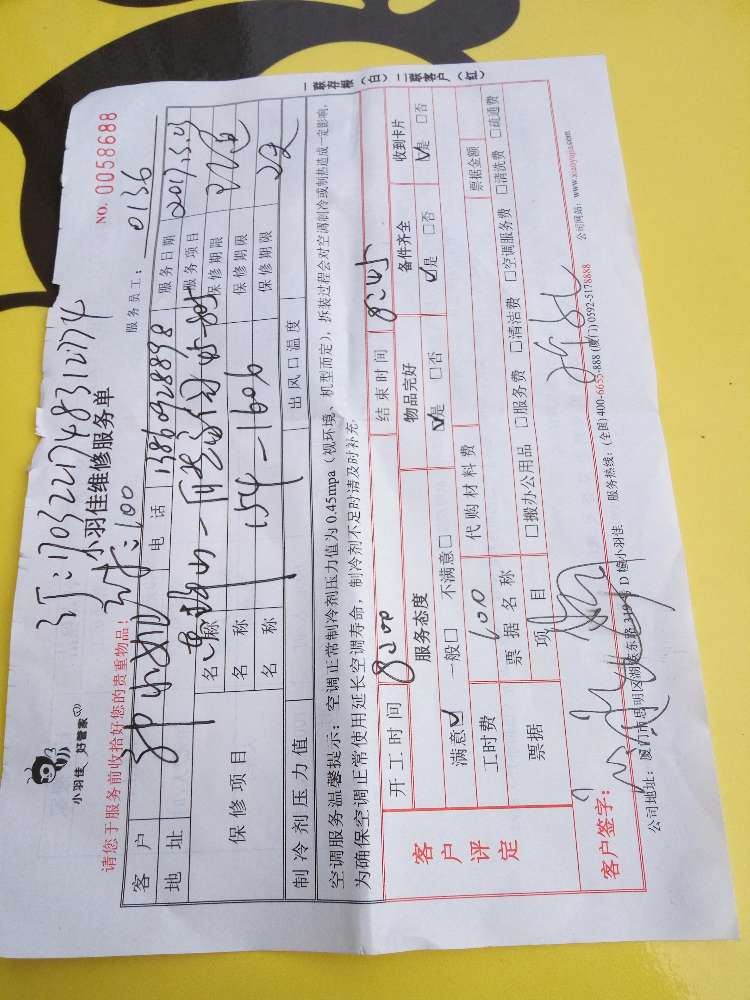 一联存根（白）二联客户（红）
小羽佳 好管家
小羽佳维修服务单
NO. 0058688
请您于服务前收拾好您的贵重物品！
服务员工： 0136
:100
客户
电话 13860928898
服务日期 2017.5.03
地址
服务项目
保修项目
名称 保修期限
名称 保修期限
名称 保修期限
制冷剂压力值 出风口温度
空调服务温馨提示：空调正常制冷剂压力值为 0.45mpa（视环境、机型而定），拆装过程会对空调制冷或制热造成一定影响,
为确保空调正常使用延长空调寿命，制冷剂不足时请及时补充.
开工时间 8:00 结束时间
客户评定
服务态度 物品完好 备件齐全 收到卡片
满意☑ 一般□ 不满意□ ☑是 □否 ☑是 □否 ☑是 □否
工时费 100 代购材料费
票据 票据名称 票据金额
项目 □搬办公用品 □服务费 □清洁费 □空调服务费 □清洗费 □疏通费
客户签字：
公司地址：厦门市思明区湖滨东路 319 号 D 幢小羽佳 服务热线：(全国)400-6655-888 (厦门)0592-5178888 公司网站：www.xiaoyujia.com